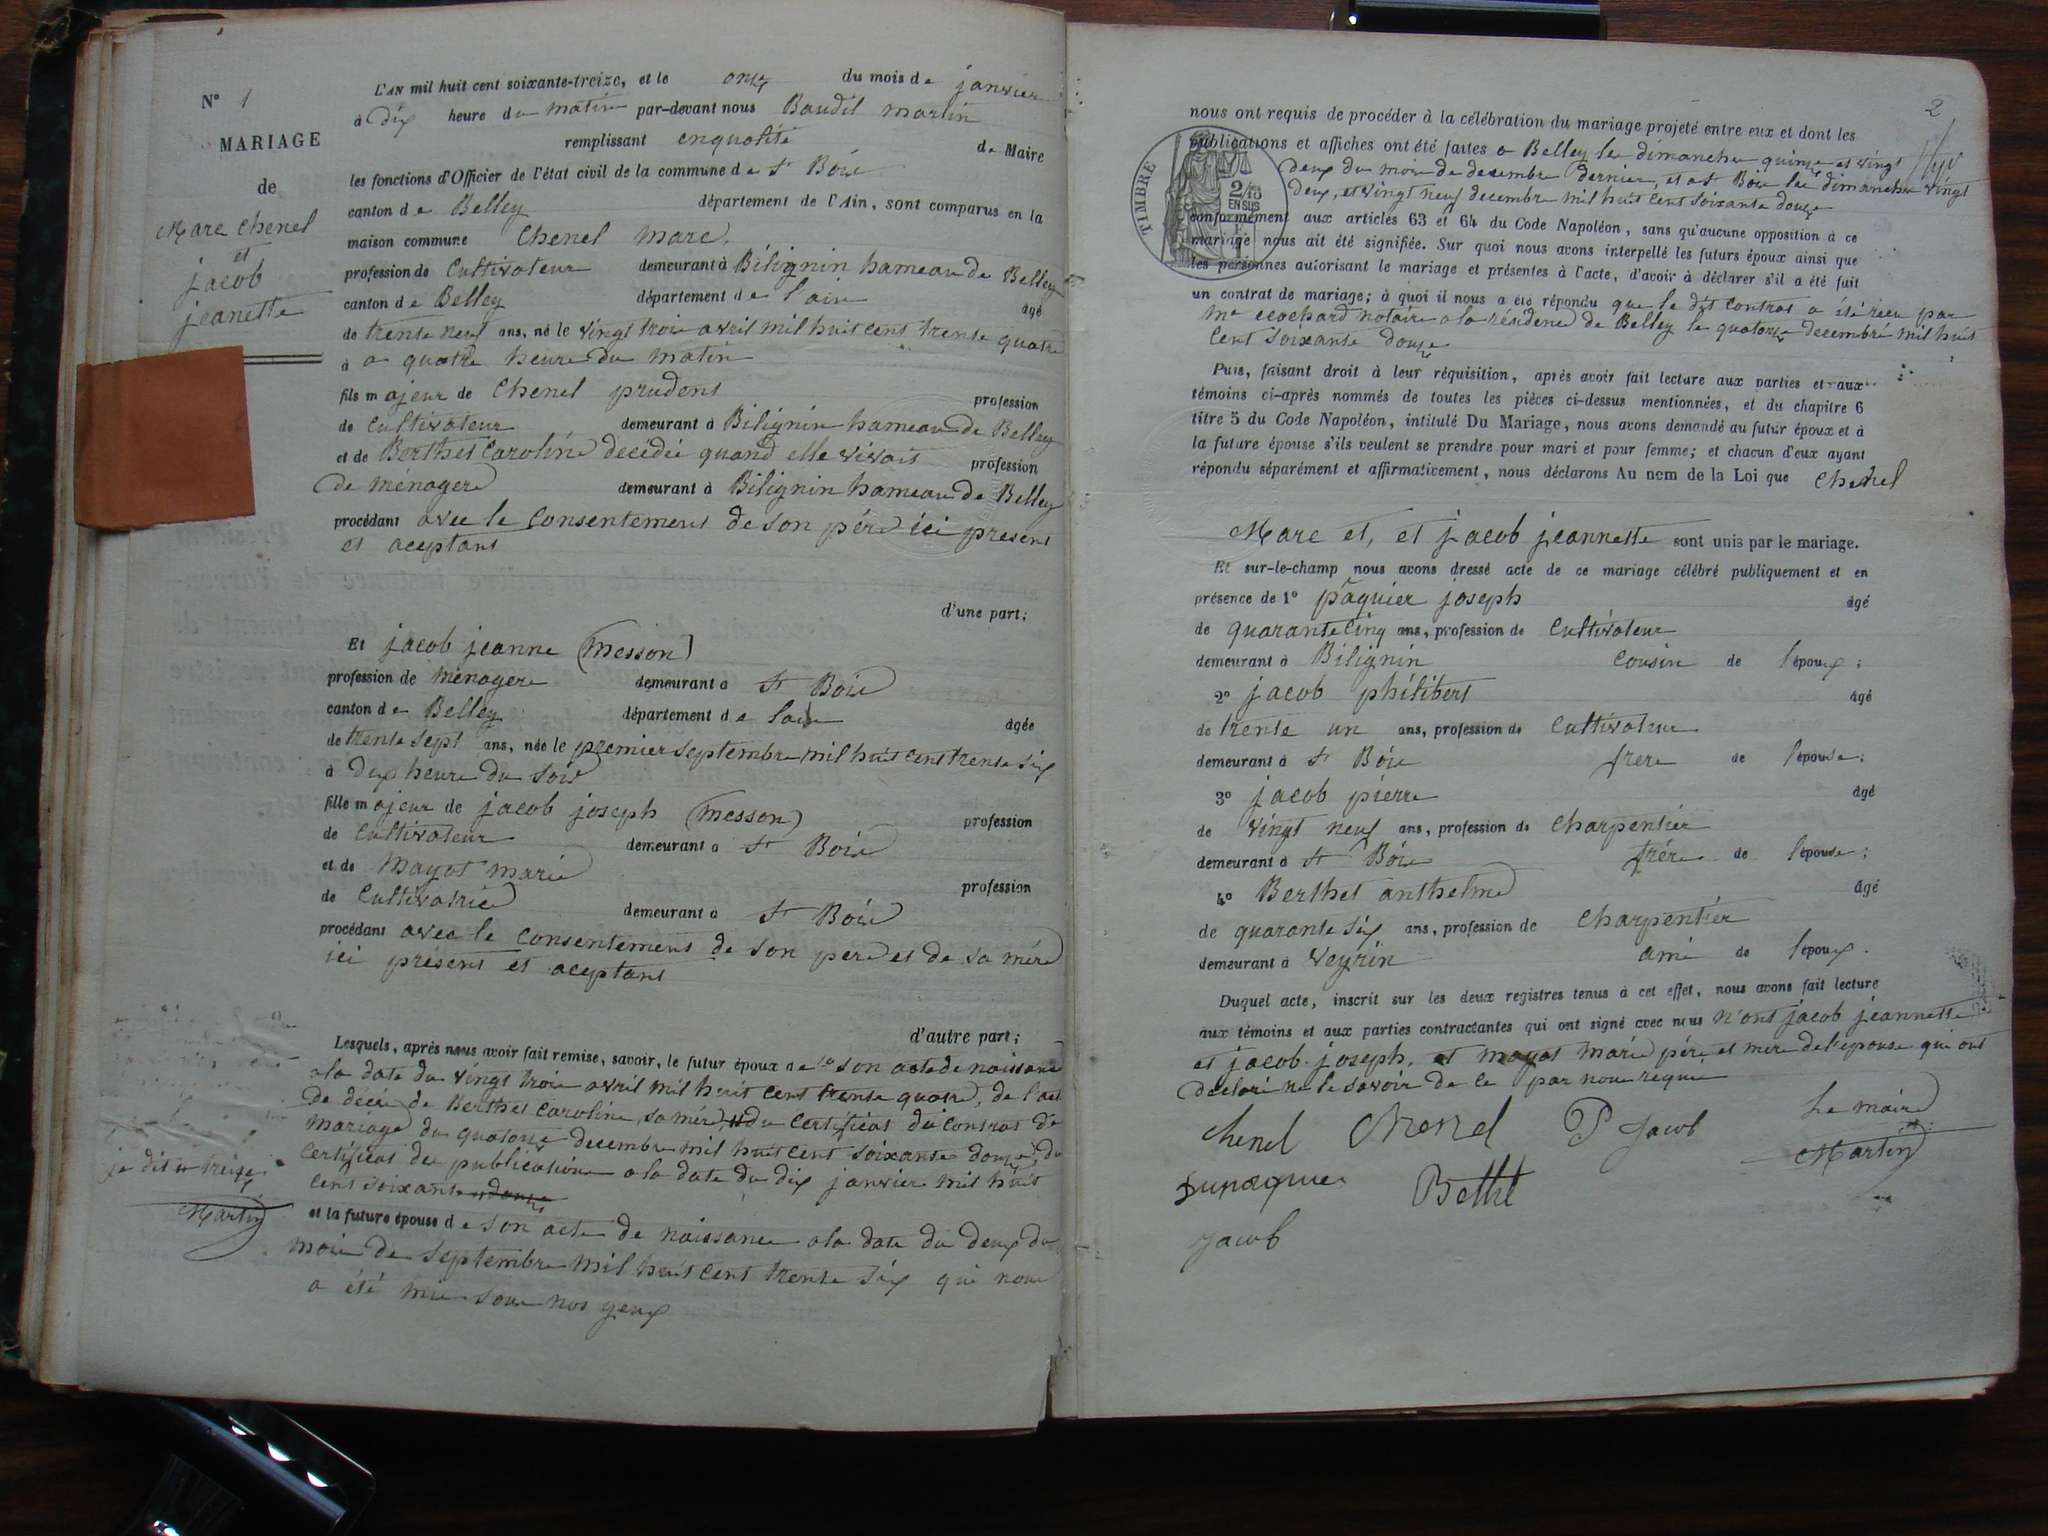 N° 1
MARIAGE
de
Marc Chenel
et
jacob
jeanette
L'AN mil huit cent soixante-treize, et le onze du mois de janvier
à dix heure du matin par-devant nous Baudil martin
remplissant enqualité de Maire
les fonctions d'Officier de l'état civil de la commune de St Bois
canton de Belley département de l'Ain, sont comparus en la
maison commune Chenel Marc.
profession de Cultivateur demeurant à Bilignin hameau de Belley
canton de Belley département de l'ain âgé
de trente neuf ans, né le vingt trois avril mil huit cent trente quatre
à a quatre heure du matin
fils majeur de Chenel prudent profession
de Cultivateur demeurant à Bilignin hameau de Belley
et de Berthet Caroline decédée quand elle vivait profession
De ménagere demeurant à Bilignin hameau de Belley
procédant avec le Consentement de son père ici present
et aceptant
d'une part;
Et jacob jeanne (messon)
profession de menagere demeurant à St Bois
canton de Belley département de l'ain âgée
de trente sept ans, née le premier septembre mil huit cent trente six
à dix heure du soir
fille majeur de jacob joseph (messon) profession
de Cultivateur demeurant à St Bois
et de Mayot marie profession
de Cultivatrice demeurant à St Bois
procédant avec le Consentement de son pere et de sa mére
ici présent et aceptant
d'autre part;
Lesquels, après nous avoir fait remise, savoir, le futur époux de son acte de naissance
a la date du vingt trois avril mil huit cent trente quatre, de l'acte
de decés de Berthet Caroline, sa mére, du certificat du Contrat de
mariage du quatorze decembre mil huit cent soixante douze, du
certificat de publications a la date du dix janvier mil huit
cent soixante douze
je dit treize
Martin
et la future épouse de son acte de naissance a la date du deux du
mois de septembre mil huit cent trente six qui nous
a été mis sous nos yeux
2
nous ont requis de procéder à la célébration du mariage projeté entre eux et dont les
publications et affiches ont été faites a Belley les dimanches quinze et vingt
deux du mois de desembre dernier, et a St Bois les dimanches vingt
deux, et vingt neuf decembre mil huit cent soixante douze
TIMBRE
2/10
EN SUS
conformément aux articles 63 et 64 du Code Napoléon, sans qu'aucune opposition à ce
mariage nous ait été signifiée. Sur quoi nous avons interpellé les futurs époux ainsi que
les personnes autorisant le mariage et présentes à l'acte, d'avoir à déclarer s'il a été fait
un contrat de mariage; à quoi il nous a été répondu que le dit Contrat a été reçu par
Me notaire a la résidence de Belley le quatorze decembre mil huit
Cent Soixante douze
Puis, faisant droit à leur réquisition, après avoir fait lecture aux parties et aux
témoins ci-après nommés de toutes les pièces ci-dessus mentionnées, et du chapitre 6
titre 5 du Code Napoléon, intitulé Du Mariage, nous avons demandé au futur époux et à
la future épouse s'ils veulent se prendre pour mari et pour femme; et chacun d'eux ayant
répondu séparément et affirmativement, nous déclarons Au nom de la Loi que Chenel
Marc et, et jacob jeannette sont unis par le mariage.
Et sur-le-champ nous avons dressé acte de ce mariage célébré publiquement et en
présence de 1° paquier joseph âgé
de quarante cinq ans, profession de Cultivateur
demeurant à Bilignin cousin de l'époux;
2° jacob philibert âgé
de trente un ans, profession de Cultivateur
demeurant à St Bois frere de l'épouse;
3° jacob pierre âgé
de vingt neuf ans, profession de charpentier
demeurant à St Bois frére de l'épouse;
4° Berthet anthelme âgé
de quarante six ans, profession de charpentier
demeurant à veyrin ami de l'époux.
Duquel acte, inscrit sur les deux registres tenus à cet effet, nous avons fait lecture
aux témoins et aux parties contractantes qui ont signé avec nous n'ont jacob jeannette
et jacob joseph, et mayot marie pére et mere de l'epouse qui ont
declaré ne le savoir de ce par nous requis
Chenel Chenel P Jacob Le maire
Martin
Bethet
Jacob